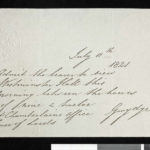 July 11th
1821
Admit the bearer to view
Westminster Hall this
morning between the hours
of nine & twelve
Chamberlains office
House of Lords
Gwydyr